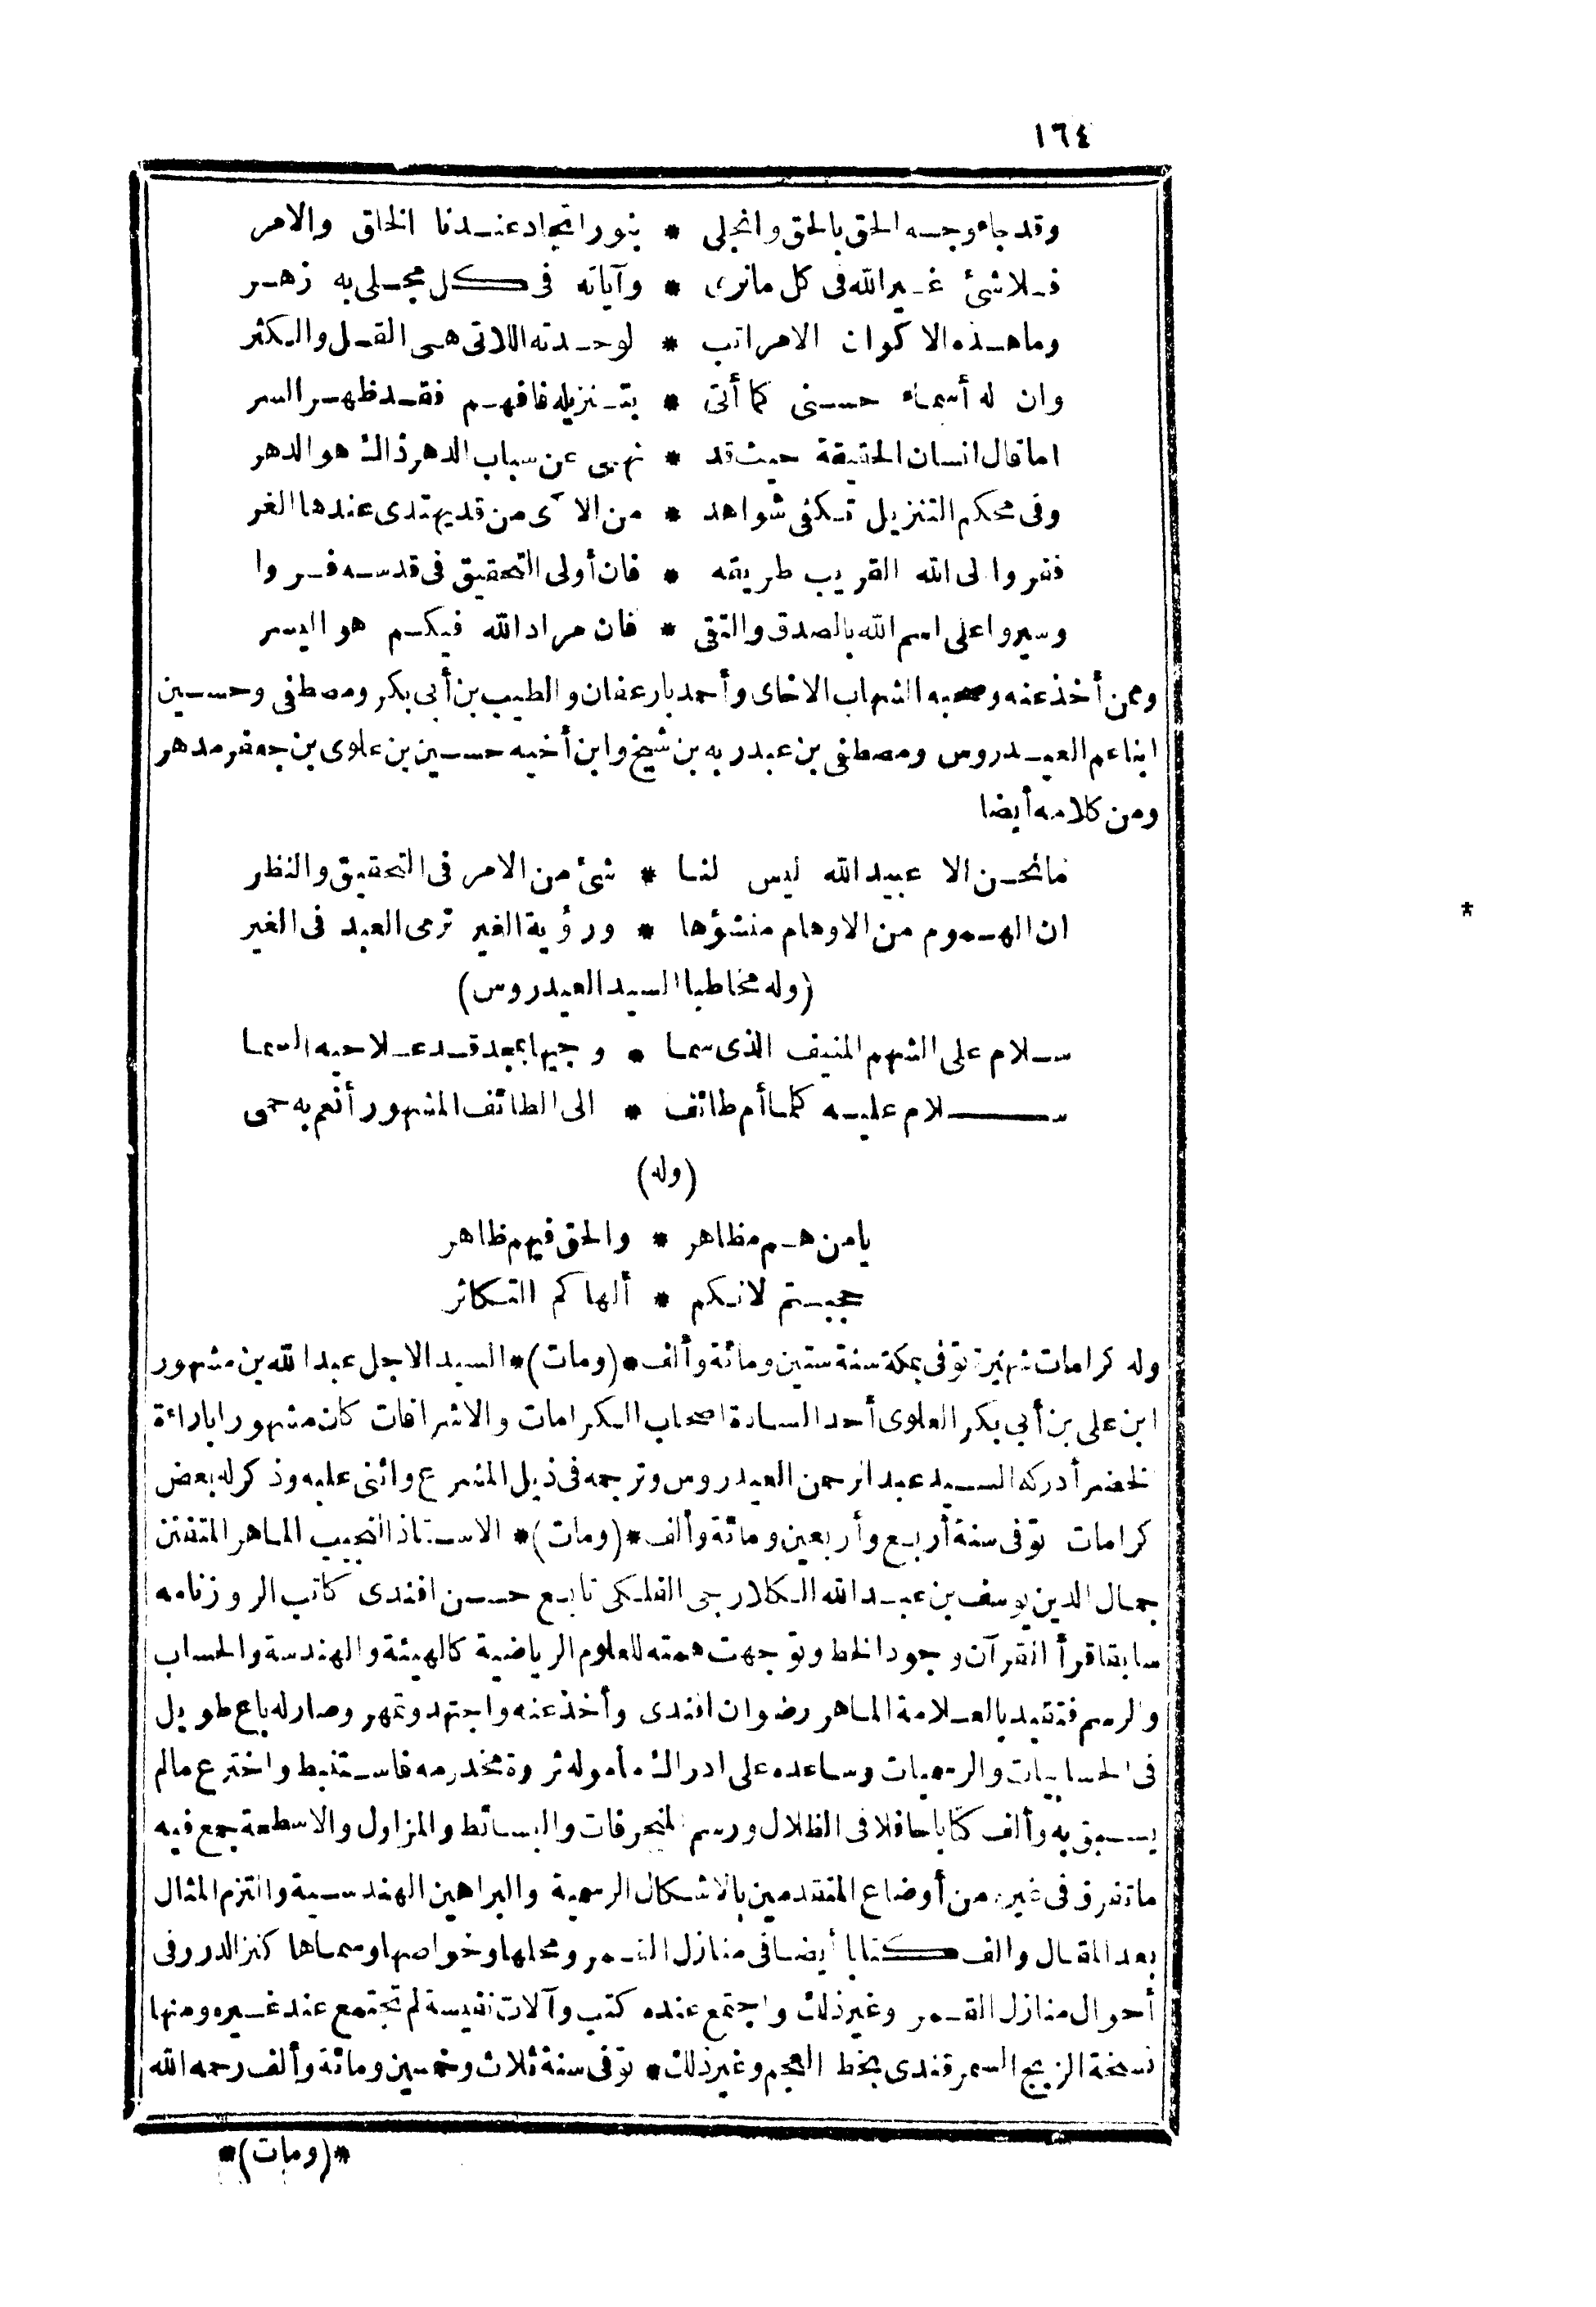 ١٦٤
وقد جاء وجه الحق بالحق وانجلى * بنور اتجاد عندنا الخلق والامر
فلا شئ غير الله فى كل مانرى * وآياته فى كل مجلى به زهر
وما هذه الاكوان الامراتب * لوحدته اللاتى هى القل والكثر
وان له أسماء حسنى كما أتى * بتنزيله فافهم فقد ظهر السر
اما قال انسان الحقيقة حيث قد * نهى عن سباب الدهر ذاك هو الدهر
وفى محكم التنزيل تكفى شواهد * من الآى من قد يهتدى عندها الغر
ففروا الى الله القريب طريقه * فان أولى التحقيق فى قدسه فروا
وسيروا على اسم الله بالصدق والتقى * فان مراد الله فيكم هو اليسر
وممن أخذ عنه وصحبه الشهاب الاخاى وأحمد بارعفان والطيب بن أبى بكر ومصطفى وحسين
ابنا عم العيدروس ومصطفى بن عبدربه بن شيخ وابن أخيه حسين بن علوى بن جعفر مدهر
ومن كلامه أيضا
مانحن الا عبيد الله ليس لنا * شئ من الامر فى التحقيق والنظر
ان الهموم من الاوهام منشؤها * ورؤية الغير ترمى العبد فى الغير
(وله مخاطبا السيد العيدروس)
سلام على الشهم المنيف الذى سما * وجيها بمجد قد علا حيه السما
سلام عليه كلما أم طائف * الى الطائف المشهور أنعم به حمى
(وله)
يا من هم مظاهر * والحق فيهم ظاهر
حجبتم لانكم * ألهاكم التكاثر
وله كرامات شهيرة توفى بمكة سنة ستين ومائة وألف *(ومات)* السيد الاجل عبد الله بن مشهور
ابن على بن أبى بكر العلوى أحد السادة اصحاب الكرامات والاشراقات كان مشهورا باراءة
الخضر أدركه السيد عبد الرحمن العيدروس وترجمه فى ذيل المشرع واثنى عليه وذكر له بعض
كرامات توفى سنة أربع وأربعين ومائة وألف *(ومات)* الاستاذ النجيب الماهر المتفنن
جمال الدين يوسف بن عبد الله الكلارجى الفلكى تابع حسن افندى كاتب الروزنامه
سابقا قرأ القرآن وجود الخط وتوجهت همته للعلوم الرياضية كالهيئة والهندسة والحساب
والرسم فتقيد بالعلامة الماهر رضوان افندى وأخذ عنه واجتهد وتمهر وصار له باع طويل
فى الحسابيات والرسميات وساعده على ادراك مأموله ثروة مخدومه فاستنبط واخترع مالم
يسبق به وألف كتابا حافلا فى الظلال ورسم المنحرفات والبسائط والمزاول والاسطحة جمع فيه
ماتفرق فى غيره من أوضاع المتقدمين بالاشكال الرسمية والبراهين الهندسية والتزم المثال
بعد المقال والف كتابا أيضا فى منازل القمر ومحلها وخواصها وسماها كنز الدرر فى
أحوال منازل القمر وغير ذلك واجتمع عنده كتب وآلات نفيسة لم تجتمع عند غيره ومنها
نسخة الزيج السمرقندى بخط العجم وغير ذلك * توفى سنة ثلاث وخمسين ومائة وألف رحمه الله
*(ومات)*